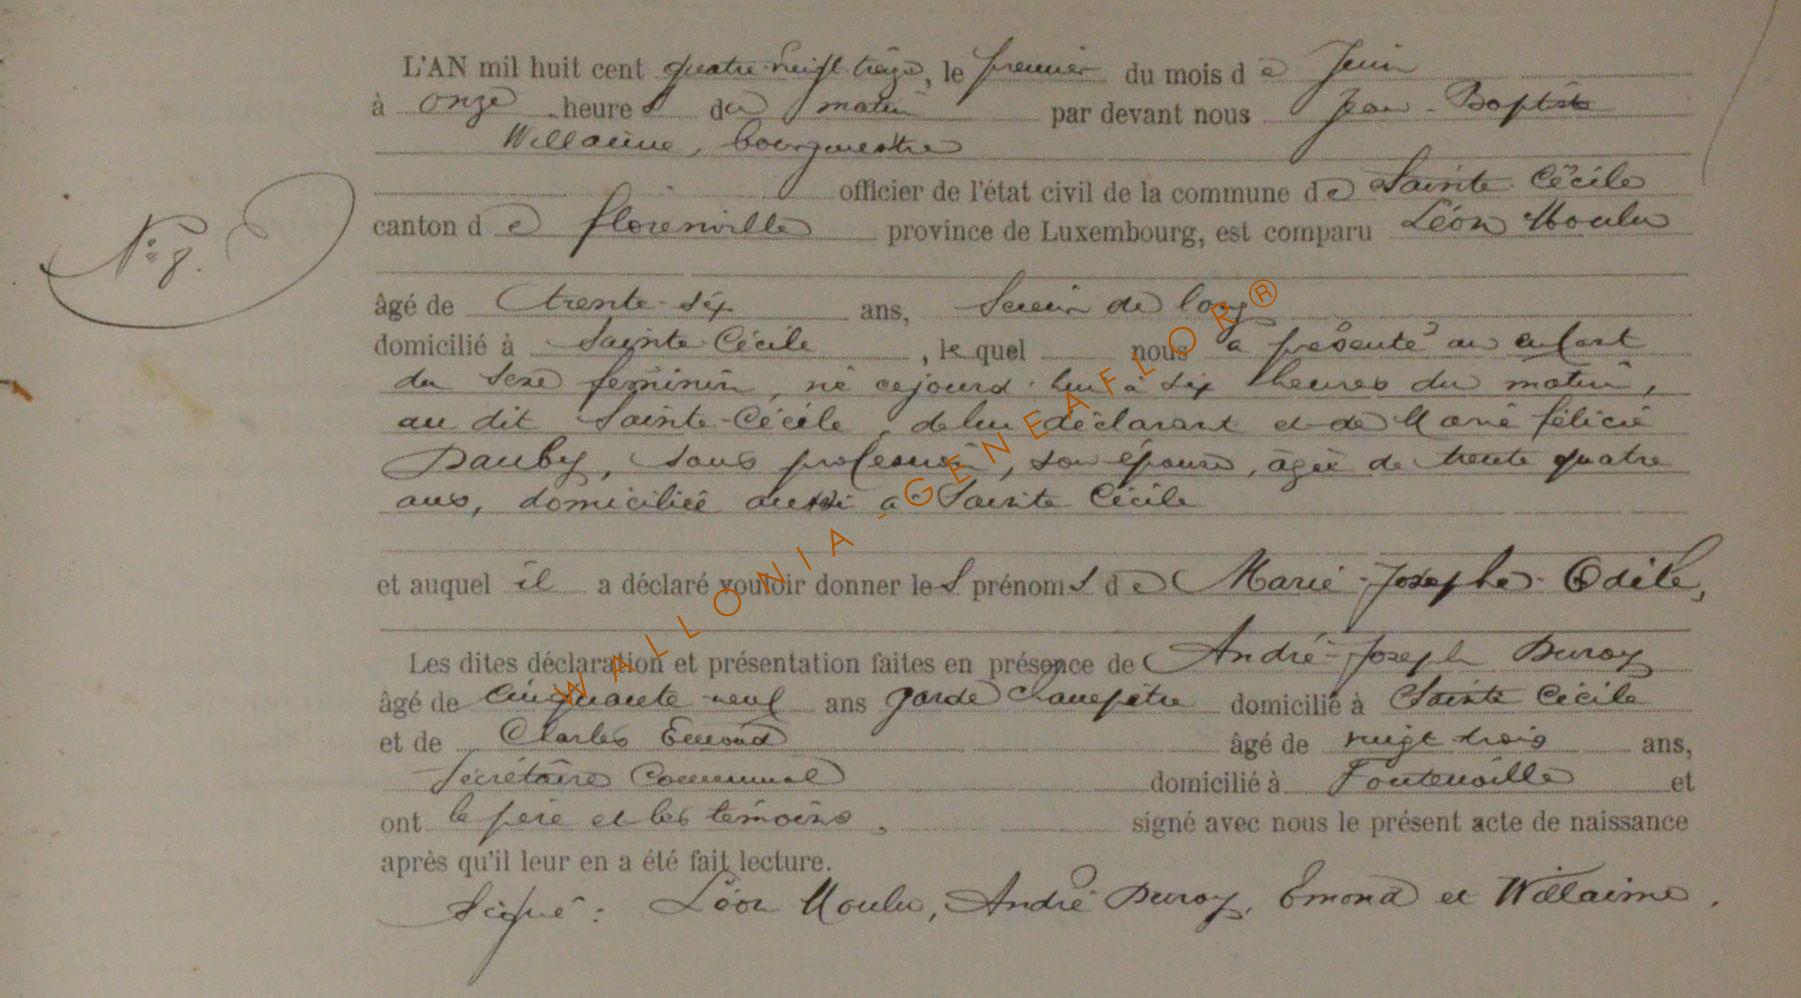 L'AN mil huit cent quatre-vingt treize, le premier du mois de Juin
à onze heures du matin par devant nous Jean-Baptiste
Willaime, bourgmestre
officier de l'état civil de la commune de Sainte-Cécile
N° 8.
canton de Florenville province de Luxembourg, est comparu Léon Moulu
âgé de trente-six ans, Scieur de long
domicilié à Sainte-Cécile, lequel nous a présenté un enfant
du sexe féminin, né cejourd'hui à six heures du matin,
au dit Sainte-Cécile, de lui déclarant et de Marie Félicie
Dauby, sans profession, son épouse, âgée de trente quatre
ans, domiciliée aussi à Sainte Cécile
et auquel il a déclaré vouloir donner les prénoms de Marie-Josephe-Odile,
Les dites déclaration et présentation faites en présence de André-Joseph Duroy
âgé de cinquante-neuf ans garde champêtre domicilié à Sainte Cécile
et de Charles Emond âgé de vingt trois ans,
Secrétaire Communal domicilié à Fontenoille et
ont le père et les témoins, signé avec nous le présent acte de naissance
après qu'il leur en a été fait lecture.
Signé : Léon Moulu, André Duroy, Emond et Willaime.
WALLONIA-GENEAFLOR®